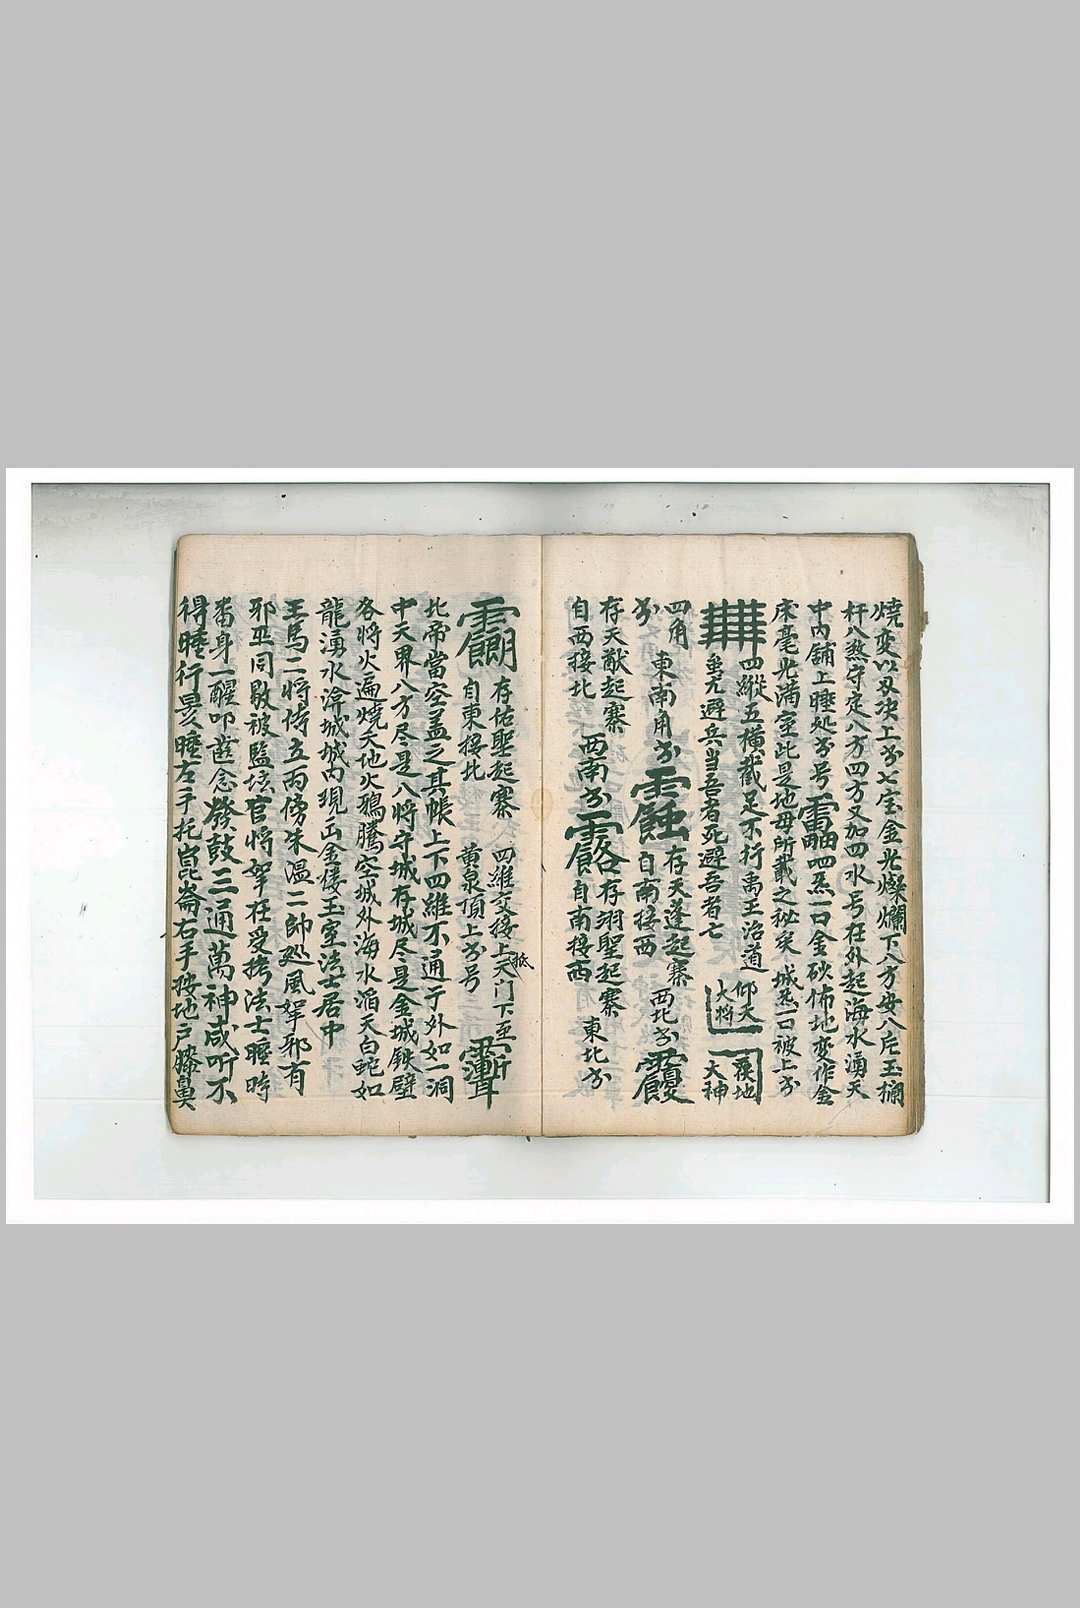 燒変以刄决上书七宝金光燦爛下八方安八片玉欄
杆八煞守定八方四方又加四水号在外起海水湧天
中内舖上睡処书号 四炁一口金砂佈地变作金
床毫光满室此是地母所載之秘矣城炁一口被上书
四縱五横截足不行禹王治道 仰天大将 地大神
蚩尤避兵当吾者死避吾者七
四角 東南角书 存天蓬起寨 西北书
书 自南接西
存天猷起寨 西南书 存翊聖起寨 東北书
自西接北 自南接西
存佑聖起寨 四維交接上抵天门下至
自東接北 黄泉頂上书号
北帝當空盖之其帳上下四維不通于外如一洞
中天界八方尽是八将守城存城尽是金城铁壁
各将火遍燒天地火鴉騰空城外海水滔天白蛇如
龍湧水渰城城内現出金楼玉室法士居中
王馬二将侍立两傍朱温二帥 風拏邪有
邪巫同敺被監 官将拏在受拷法士睡時
番身一醒叩齿念發鼓三通萬神咸听不
得睡行 睡左手托崑崙右手按地户膝鼻